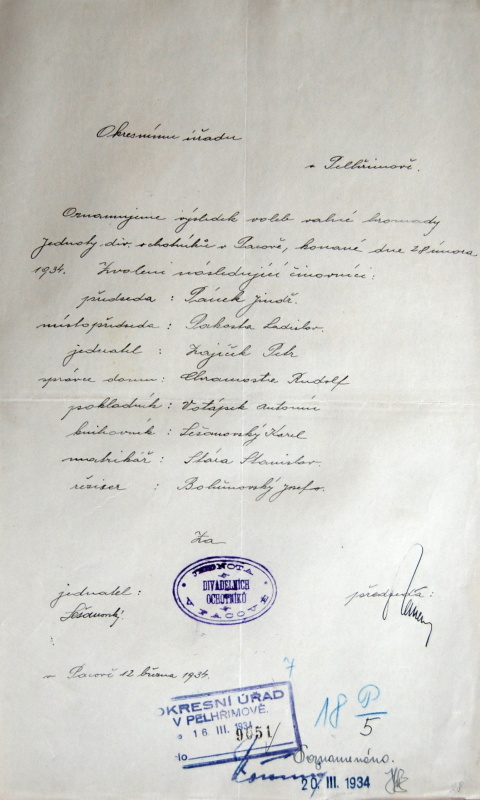 Okresnímu úřadu
v Pelhřimově.
Oznamujeme výsledek voleb valné hromady
Jednoty div. ochotníků v Pacově, konané dne 28 února
1934. Zvoleni následující činovníci:
předseda : Pánek Jindř.
místopředseda : Pakosta Ladislav.
jednatel : Zajíček Petr
správce domu: Chramosta Rudolf
pokladník : Votápek Antonín
knihovník : Lešanovský Karel
matrikář : Stára Stanislav.
režiser : Bohunovský Josef.
Za
JEDNOTA
DIVADELNÍCH
OCHOTNÍKŮ
V PACOVĚ
jednatel:
předseda:
v Pacově 12 března 1934.
7
OKRESNÍ ÚŘAD
V PELHŘIMOVĚ.
16 III. 1934
9051
18 P/5
Poznamenáno.
20. III. 1934